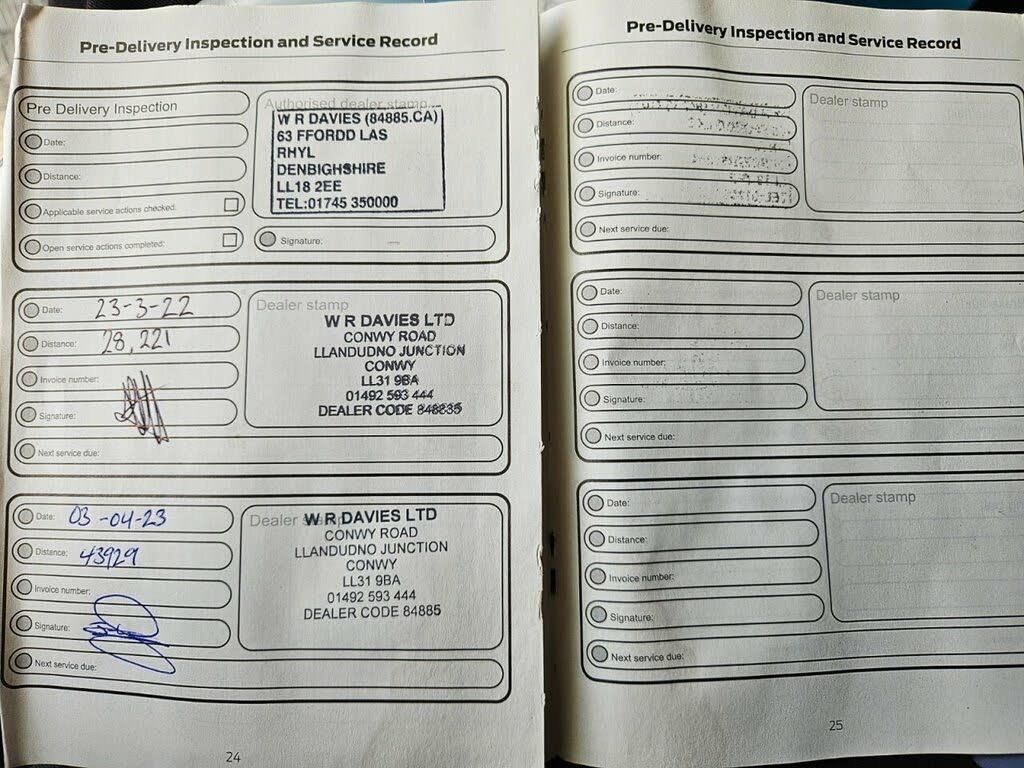 Pre-Delivery Inspection and Service Record
Pre Delivery Inspection
Date:
Distance:
Applicable service actions checked:
Open service actions completed:
Authorised dealer stamp...
W R DAVIES (84885.CA)
63 FFORDD LAS
RHYL
DENBIGHSHIRE
LL18 2EE
TEL:01745 350000
Signature:
Date: 23-3-22
Distance: 28,221
Invoice number:
Signature:
Next service due:
Dealer stamp
W R DAVIES LTD
CONWY ROAD
LLANDUDNO JUNCTION
CONWY
LL31 9BA
01492 593 444
DEALER CODE
Date: 03-04-23
Distance: 43929
Invoice number:
Signature:
Next service due:
Dealer stamp
W R DAVIES LTD
CONWY ROAD
LLANDUDNO JUNCTION
CONWY
LL31 9BA
01492 593 444
DEALER CODE 84885
24
Pre-Delivery Inspection and Service Record
Date:
Distance:
Invoice number:
Signature:
Next service due:
Dealer stamp
Date:
Distance:
Invoice number:
Signature:
Next service due:
Dealer stamp
Date:
Distance:
Invoice number:
Signature:
Next service due:
Dealer stamp
25